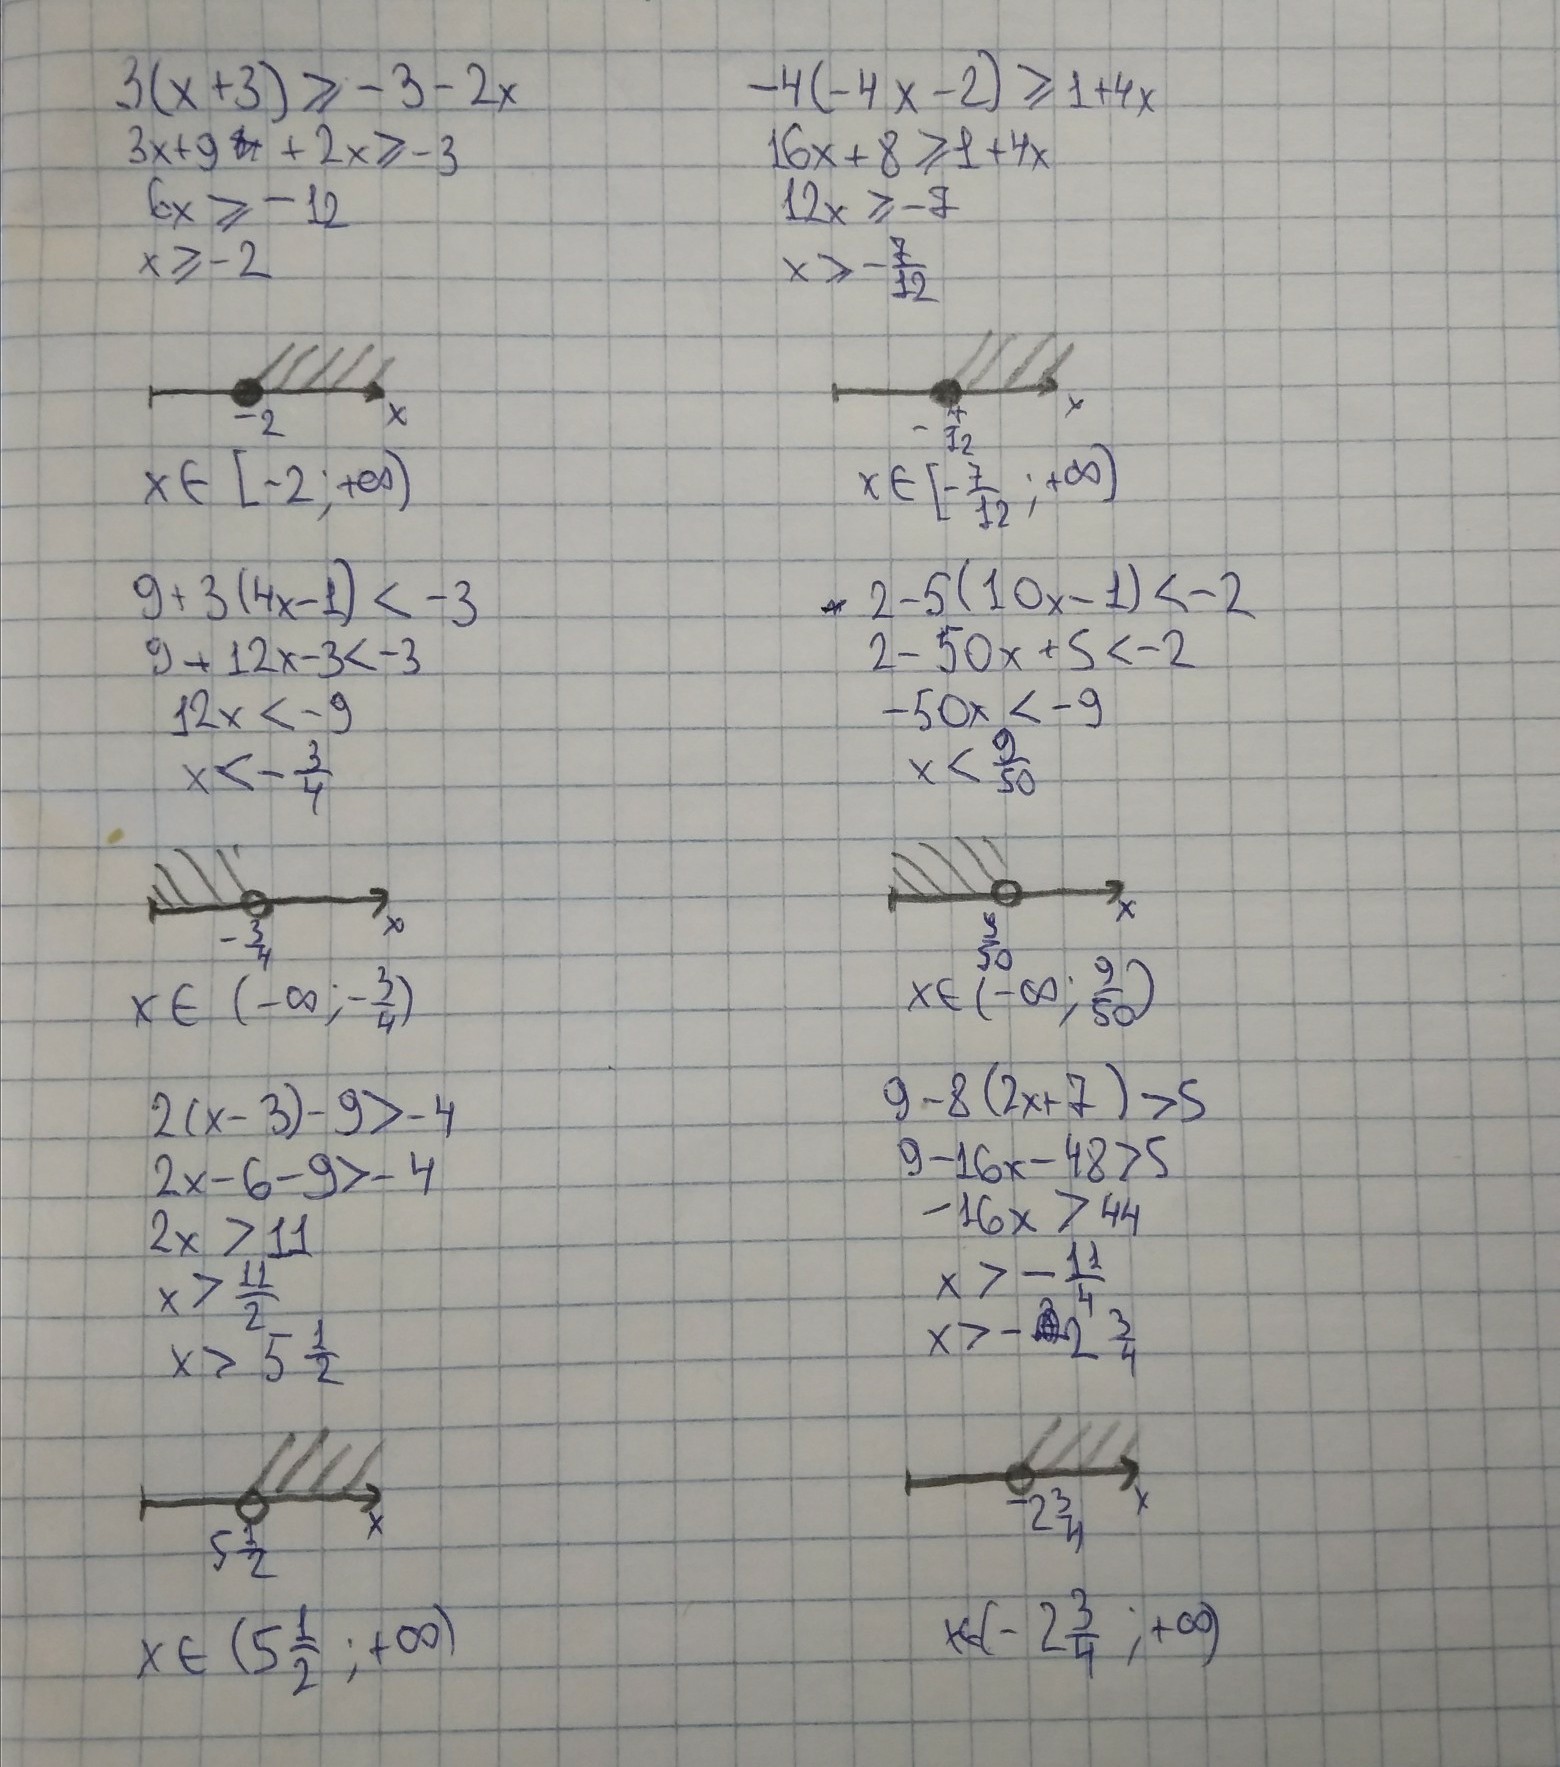 3(x+3) ⩾ -3-2x
3x+9 + 2x ⩾ -3
6x ⩾ -12
x ⩾ -2
-2
x
x ∈ [-2; +∞)
-4(-4x-2) ⩾ 1+4x
16x+8 ⩾ 1+4x
12x ⩾ -7
x ⩾ -7/12
-7/12
x
x ∈ [-7/12; +∞)
9+3(4x-1) < -3
9+12x-3<-3
12x < -9
x < -3/4
-3/4
x
x ∈ (-∞; -3/4)
2-5(10x-1) < -2
2-50x+5 < -2
-50x < -9
x < 9/50
9/50
x
x ∈ (-∞; 9/50)
2(x-3)-9>-4
2x-6-9>-4
2x > 11
x > 11/2
x > 5 1/2
5 1/2
x
x ∈ (5 1/2; +∞)
9-8(2x+7) >5
9-16x-48>5
-16x > 44
x > -11/4
x > -2 3/4
-2 3/4
x
x ∈ (-2 3/4; +∞)